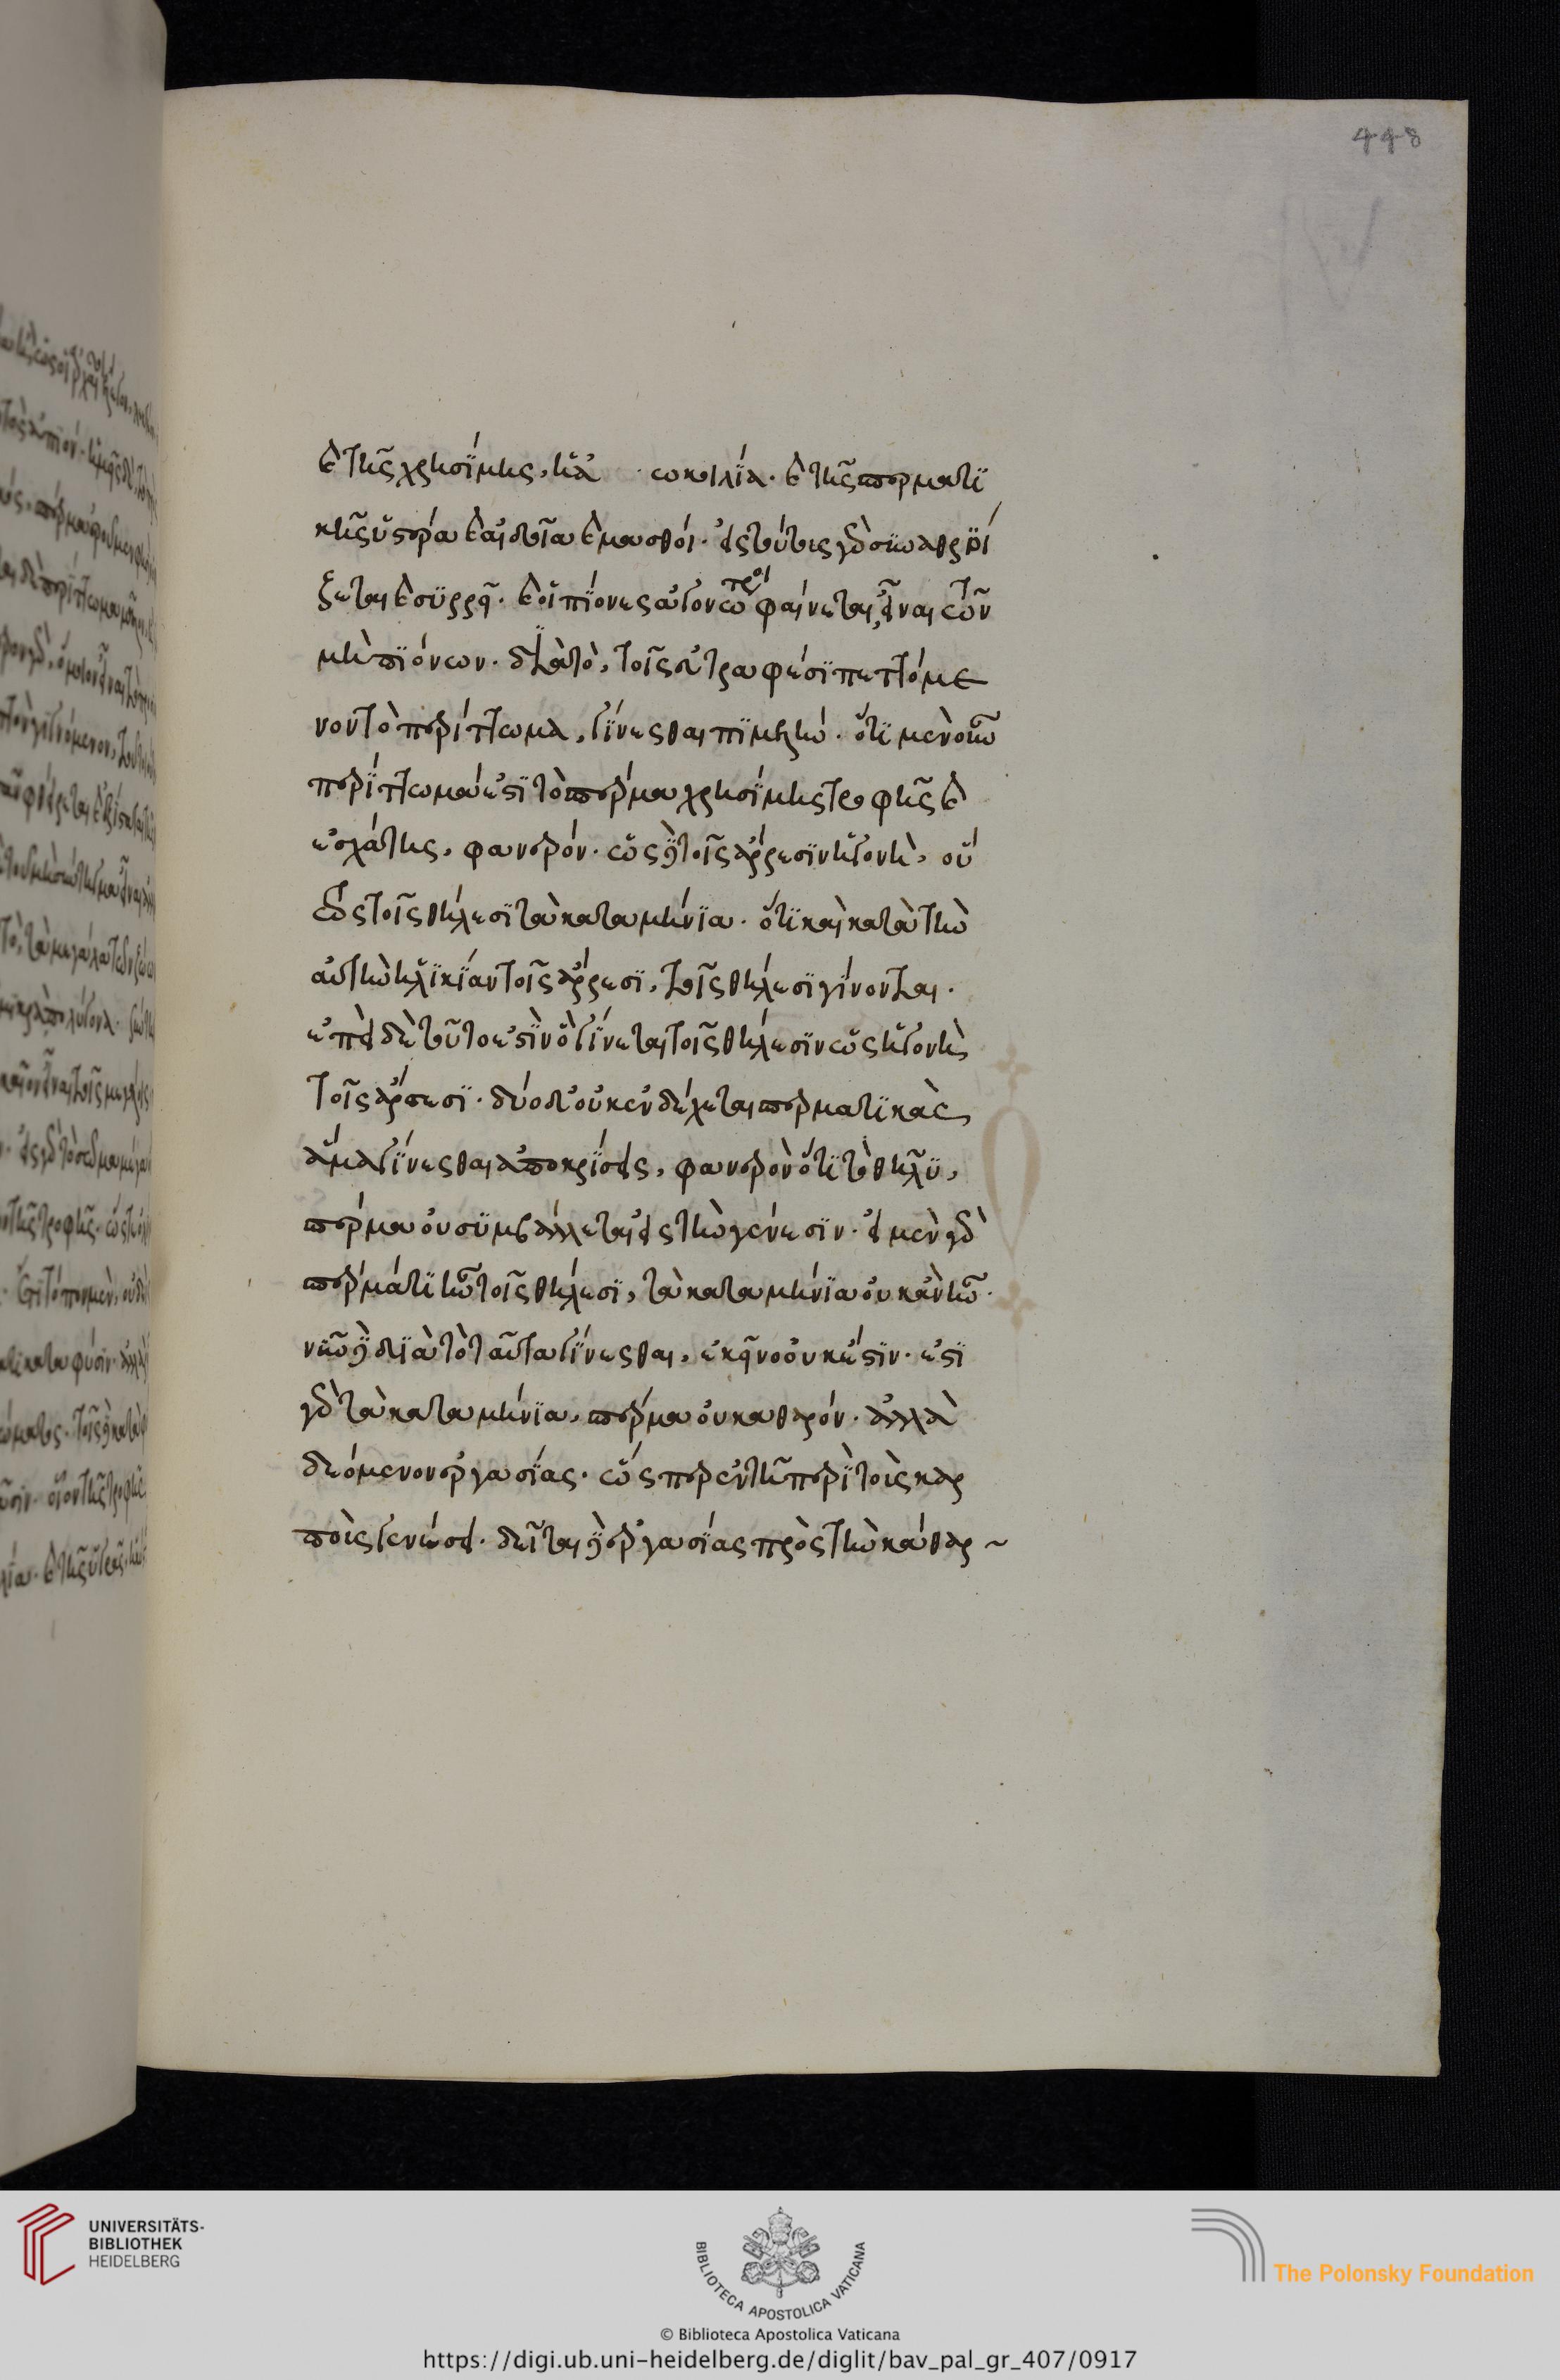 448
καὶ τῆς χρησίμης, ἡ ἄνω κοιλία. καὶ τῆς σπερματι
κῆς ὑστέρα καὶ αἰδοῖα καὶ μασθοί. εἰς τούτους γὰρ συναθροί
ζεται καὶ συρρεῖ. καὶ οἱ πίονες ἀγονώτεροι φαίνεται, εἶναι τῶν
μὴ πιόνων. διὰ τὸ, τοῖς εὐτραφέσι πεττόμε
νον τὸ περίττωμα, γίνεσθαι πιμελήν. ὅτι μὲν οὖν
περίττωμά ἐστι τὸ σπέρμα χρησίμης τροφῆς καὶ
ἐσχάτης, φανερόν. ὡς δὲ τοῖς ἄρρεσιν ἡ γονὴ, οὕ
τως τοῖς θήλεσι τὰ καταμήνια. ὅτι καὶ κατὰ τὴν
αὐτὴν ἡλικίαν τοῖς ἄρρεσι, τοῖς θήλεσι γίνονται.
ἐπεὶ δὲ τοῦτο ἐστὶν ὃ γίνεται τοῖς θήλεσιν ὡς ἡ γονὴ
τοῖς ἄρσεσι. δύο δ' οὐκ ἐνδέχεται σπερματικὰς
ἅμα γίνεσθαι ἀποκρίσεις, φανερὸν ὅτι τὸ θῆλυ,
σπέρμα οὐ συμβάλλεται εἰς τὴν γένεσιν. εἰ μὲν γὰρ
σπέρμά τι ἦν τοῖς θήλεσι, τὰ καταμήνια οὐκ ἂν ἦν.
νῦν δὲ διὰ τὸ ταῦτα γίνεσθαι, ἐκεῖνο οὐκ ἔστιν. ἔστι
γὰρ τὰ καταμήνια, σπέρμα οὐ καθαρόν. ἀλλὰ
δεόμενον ἐργασίας. ὥσπερ ἐν τῇ περὶ τοὺς καρ
ποὺς γενέσει. δεῖται δὲ ἐργασίας πρὸς τὴν κάθαρ ~
UNIVERSITÄTS-
BIBLIOTHEK
HEIDELBERG
BIBLIOTECA APOSTOLICA VATICANA
The Polonsky Foundation
© Biblioteca Apostolica Vaticana
https://digi.ub.uni-heidelberg.de/diglit/bav_pal_gr_407/0917